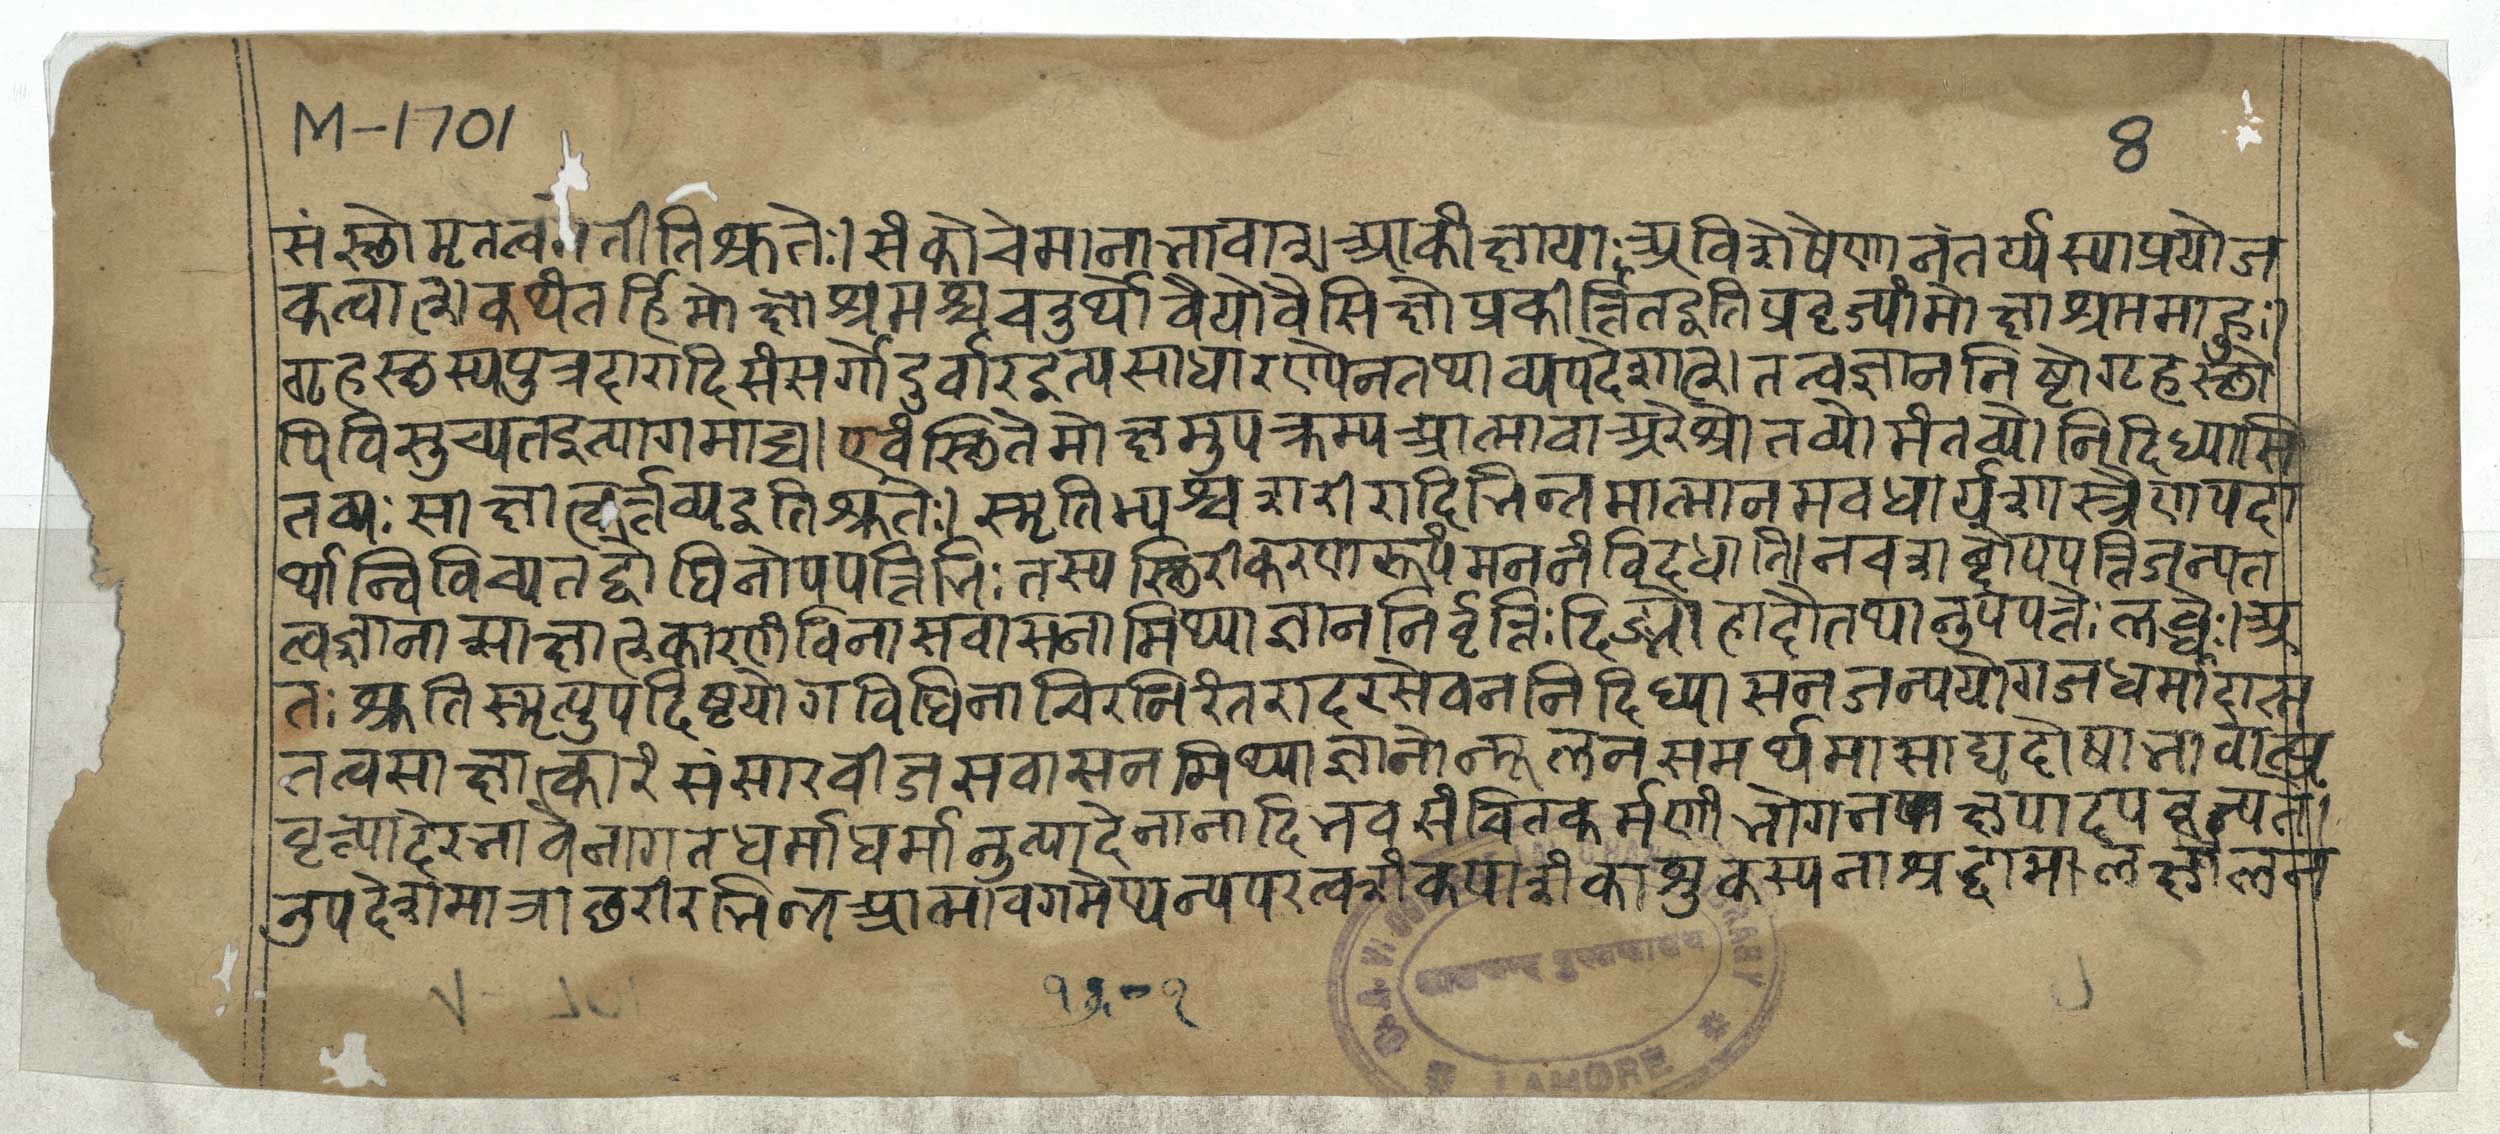 M-1701
8
संस्थोमृतत्व तीतिश्रुतेः। संकोचेमानाभावात्। आकांक्षायाः अविशेषेणानंतर्य्यस्याप्रयोज
कत्वात्। कथंतर्हिमोक्षाश्रमश्चचतुर्थोवैयोवैसिक्षोप्रकीर्त्तितइतिप्रवृज्यांमोक्षाश्रममाहुः।
गृहस्थस्यपुत्रदारादिसंसर्गोदुर्वारइत्यसाधारण्येनतथाव्यपदेशात्। तत्वज्ञाननिष्टोगृहस्थो
पिविमुच्यतइत्यागमाच्च। एवंस्थितेमोक्षमुपक्रम्यआत्मावाअरेश्रोतव्योमंतव्योनिदिध्यासि
तव्यः साक्षात्कर्त्तव्यइतिश्रुतेः। स्मृतिभ्यश्चशरीरादिभिन्नमात्मानमवधार्य्यशास्त्रेणपदा
र्थान्विविच्यतद्बोधिनोपपत्तिभिः तस्यस्थिरीकरणरूपंमननंविदधाति। नचशाब्दोपपत्तिजन्यत
त्वज्ञानात्साक्षात्कारणंविनासवासनामिथ्याज्ञाननिर्वृत्तिः दिङ्मोहादौतथानुपपत्तेः लब्धेः। अ
तः श्रुतिस्मृत्युपदिष्टयोगविधिनाचिरनिरंतरादरसेवननिदिध्यासनजन्ययोगजधर्मादात्म
तत्वसाक्षात्कारंसंसारबीजसवासनमिथ्याज्ञानोन्मूलनसमर्थमासाद्यदोषाभावात्प्र
वृत्त्यादेरभावेनागतधर्माधर्मानुत्पादेनानादिभवसंचितकर्मणांभोगेन क्षयादपवृज्यते।
नुपदेशमात्राछरीरभिन्नआत्मावगमेप्यन्यपरत्वशंकयाशंकाश्रुकस्यनाश्रद्धामलक्षालन
१५-१
LAMORE